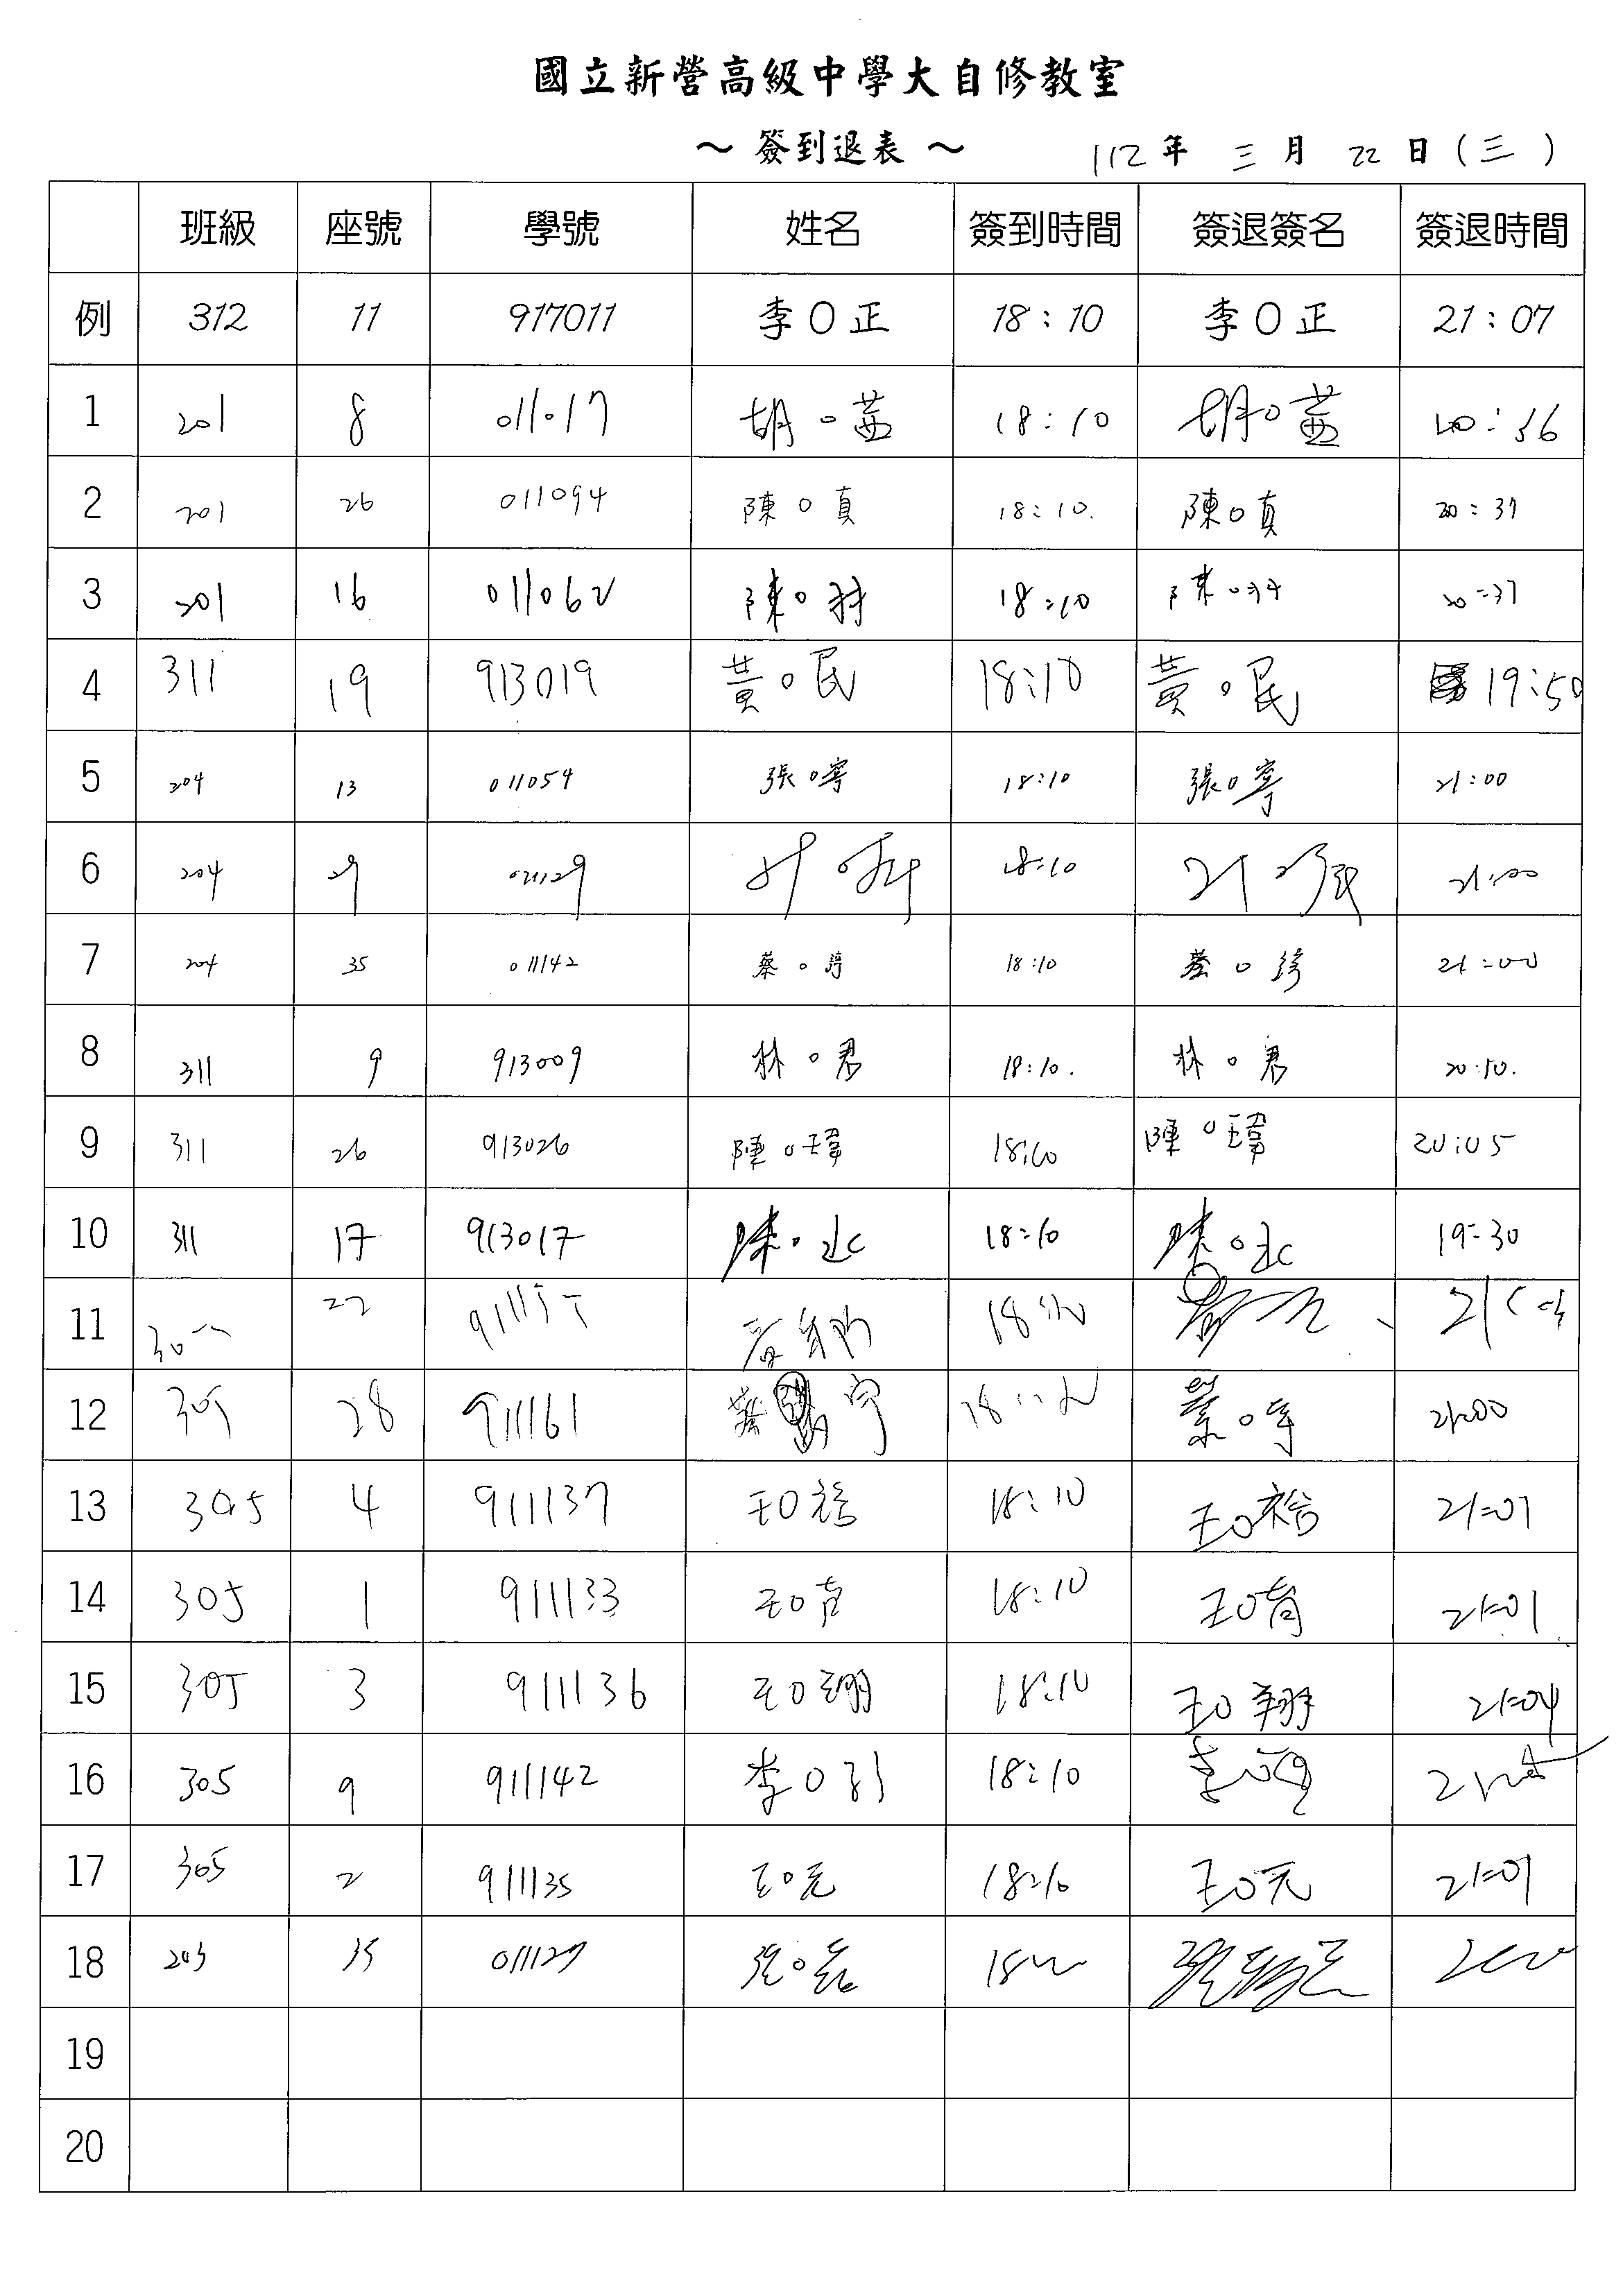 國立新營高級中學大自修教室
～ 簽到退表 ～ 112 年 三 月 22 日 ( 三 )
班級 座號 學號 姓名 簽到時間 簽退簽名 簽退時間
例 312 11 917011 李O正 18:10 李O正 21:07
1 201 8 011017 胡O茜 18:10 胡O茜 20:36
2 201 26 011094 陳O真 18:10. 陳O真 20:37
3 201 16 011062 陳O 18:10 陳O 20:37
4 311 19 913019 黃O民 18:10 黃O民 19:50
5 204 13 011054 張O寧 18:10 張O寧 21:00
6 204 29 18:10 21:00
7 204 35 011142 蔡O 18:10 蔡O 21:00
8 311 9 913009 林O君 18:10. 林O君 20:50.
9 311 26 913026 陳O瑋 18:10 陳O瑋 20:05
10 311 17 913017 陳O 18:10 陳O 19:30
11 22
12 305 28 911161 蔡 宇 O宇 21:00
13 305 4 911137 王O裕 18:10 王O裕 21:01
14 305 1 911133 王O 18:10 王O 21:01
15 305 3 911136 王O翔 18:10 王O翔 21:04
16 305 9 911142 李O 18:10 李
17 305 2 911135 王O元 18:10 王O元 21:01
18 203 35 011127
19
20